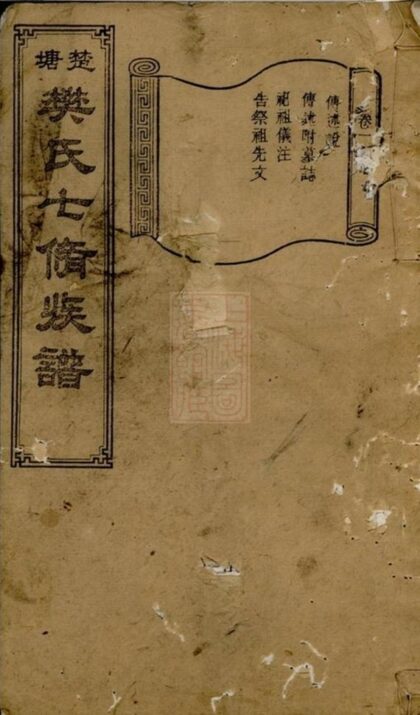 楚塘
樊氏七脩族譜
卷一
傳述
傳述附墓誌
祀祖儀注
告祭祖先文